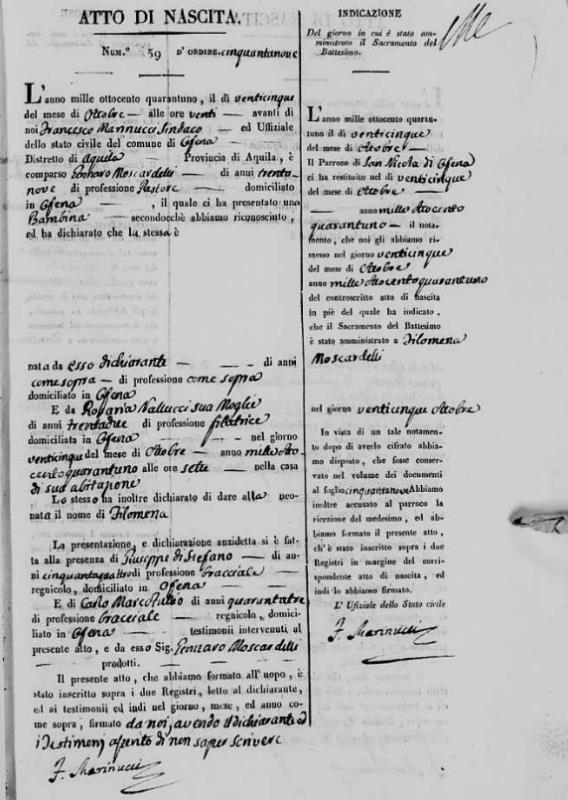 ATTO DI NASCITA.
Num.° 59 D'ORDINE cinquantanove
L'anno mille ottocento quarantuno, il dì venticinque
del mese di Ottobre — alle ore venti — avanti di
noi Francesco Marinucci Sindaco — ed Uffiziale
dello stato civile del comune di Ofena —
Distretto di Aquila — Provincia di Aquila, è
comparso Gennaro Moscardelli — di anni trenta
nove di professione Pastore — domiciliato
in Ofena — , il quale ci ha presentato una
Bambina — secondocchè abbiamo riconosciuto,
ed ha dichiarato che la stessa è
nata da esso dichiarante — di anni
come sopra — di professione come sopra
domiciliato in Ofena —
E da Rosaria Vallucci sua Moglie
di anni trentadue di professione filatrice
domiciliata in Ofena — nel giorno
venticinque del mese di Ottobre — anno mille otto
cento quarantuno alle ore sette — nella casa
di sua abitazione
Lo stesso ha inoltre dichiarato di dare alla neo-
nata il nome di Filomena
La presentazione, e dichiarazione anzidetta si è fat-
ta alla presenza di Giuseppe di Stefano — di an-
ni cinquantaquattro di professione bracciale —
regnicolo, domiciliato in Ofena —
E di Carlo Marco di anni quarantatre
di professione bracciale — regnicolo, domici-
liato in Ofena — testimonii intervenuti al
presente atto, e da esso Sig. Gennaro Moscardelli
— prodotti.
Il presente atto, che abbiamo formato all'uopo, è
stato inscritto sopra i due Registri, letto al dichiarante,
ed ai testimonii ed indi nel giorno, mese, ed anno co-
me sopra, firmato da noi, avendo il dichiarante ed
i Testimonj asserito di non saper scrivere
F. Marinucci
INDICAZIONE
Del giorno in cui è stato am-
ministrato il Sacramento del
Battesimo.
L'anno mille ottocento quaran-
tuno il dì venticinque
del mese di Ottobre —
Il Parroco di San Nicola di Ofena
ci ha restituito nel dì venticinque
del mese di Ottobre —
— anno mille Ottocento
quarantuno — il nota-
mento, che noi gli abbiamo ri-
messo nel giorno venticinque
del mese di Ottobre
anno mille ottocento quarantuno
del controscritto atto di nascita
in piè del quale ha indicato,
che il Sacramento del Battesimo
è stato amministrato a Filomena
Moscardelli
nel giorno venticinque Ottobre
In vista di un tale notamento
dopo di averlo cifrato abbia-
mo disposto, che fosse conser-
vato nel volume dei documenti
al foglio cinquantanove Abbiamo
inoltre accusato al parroco la
ricezione del medesimo, ed ab-
biamo formato il presente atto,
ch'è stato inscritto sopra i due
Registri in margine del corri-
spondente atto di nascita, ed
indi lo abbiamo firmato.
L' Ufiziale dello Stato civile
F. Marinucci